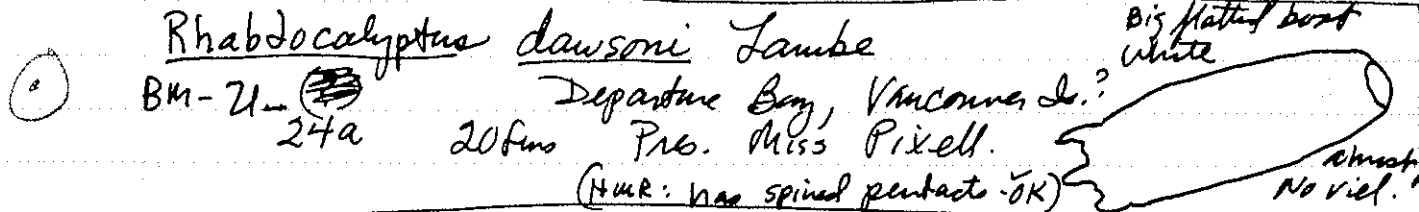 Rhabdocalyptus dawsoni Lambe
Big flatted boot
White
BM-21-
Departure Bay, Vancouver Is.?
24a 20 fms Pres. Miss Pixell.
(HMR: has spined pentacts - OK)
almost
No viel.